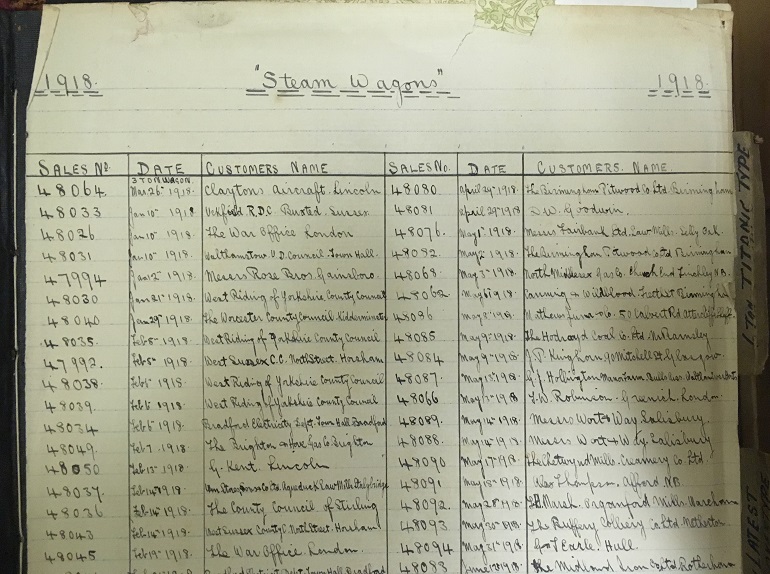 1918. "Steam Wagons" 1918.
SALES No. DATE CUSTOMERS NAME SALES No. DATE CUSTOMERS. NAME
3 TON WAGON
48064. Mar. 26" 1918. Claytons Aircraft. Lincoln 48080. April 29" 1918. The Birmingham Pitwood Co Ltd. Birmingham
48033 Jan 10" 1918 Uckfield. R.D.C. Buxted. Sussex. 48081 April 29" 1918 D. W. Goodwin.
48026 Jan 10" 1918 The War Office London 48076. May 1" 1918. Messrs Fairbank Ltd. Saw Mills. Selly Oak.
48031 Jan 10" 1918 Walthamstow U.D. Council. Town Hall. 48082. May 2" 1918 The Birmingham Pitwood Co Ltd Birmingham
47994 Jan 12" 1918 Messrs Rose Bros. Gainsboro. 48068. May 3" 1918 North Middlesex Gas Co. Church End Finchley
48030 Jan 21" 1918. West Riding of Yorkshire County Council 48062 May 6" 1918 Canning & Wildblood.
48040 Jan 29" 1918. The Worcester County Council. Kidderminster 48096 May 8" 1918. 50 Calvert Rd
48035. Feb 5" 1918. West Riding of Yorkshire County Council 48085 May 9" 1918 Coal Co Ltd. Nr Barnsley
47992. Feb 5" 1918. West Sussex C.C. North Street. Horsham 48084 May 9" 1918. J. P. Kinghorn. 90 Mitchell St Glasgow.
48038. Feb 6" 1918 West Riding of Yorkshire County Council 48087. May 13" 1918 G. J. Hollington
48039. Feb 6" 1918 West Riding of Yorkshire County Council 48066 May 13" 1918 T. W. Robinson. Greenwich. London.
48034 Feb 6" 1918 Bradford Electricity Dept. Town Hall. Bradford 48089. May 14" 1918 Messrs Wort & Way Salisbury.
48049. Feb 7. 1918 The Brighton & Hove Gas Co. Brighton 48088. May 14" 1918 Messrs Wort & Way. Salisbury.
48050 Feb 12" 1918 G. Kent. Lincoln 48090 May 17" 1918 The Chetwynd Mills. Creamery Co. Ltd.
48037. Feb 14" 1918. Saw Mills Stalybridge 48091 May 15" 1918 Thompson. Alford NB.
48036 Feb 14" 1918. The County Council of Stirling 48092. May 28" 1918 Marsh. Organford Mills. Wareham
48043 Feb 14" 1918. West Sussex County C. North Street. Horsham 48093 May 30" 1918 The Colliery Co Ltd Netherton
48045 Feb 19" 1918. The War Office. London. 48094 May 31" 1918 Earle. Hull.
Town Hall Bradford 48083 June 1" 1918 The Midland Iron Co Ltd Rotherham
1 TON TITANIC TYPE
LATEST